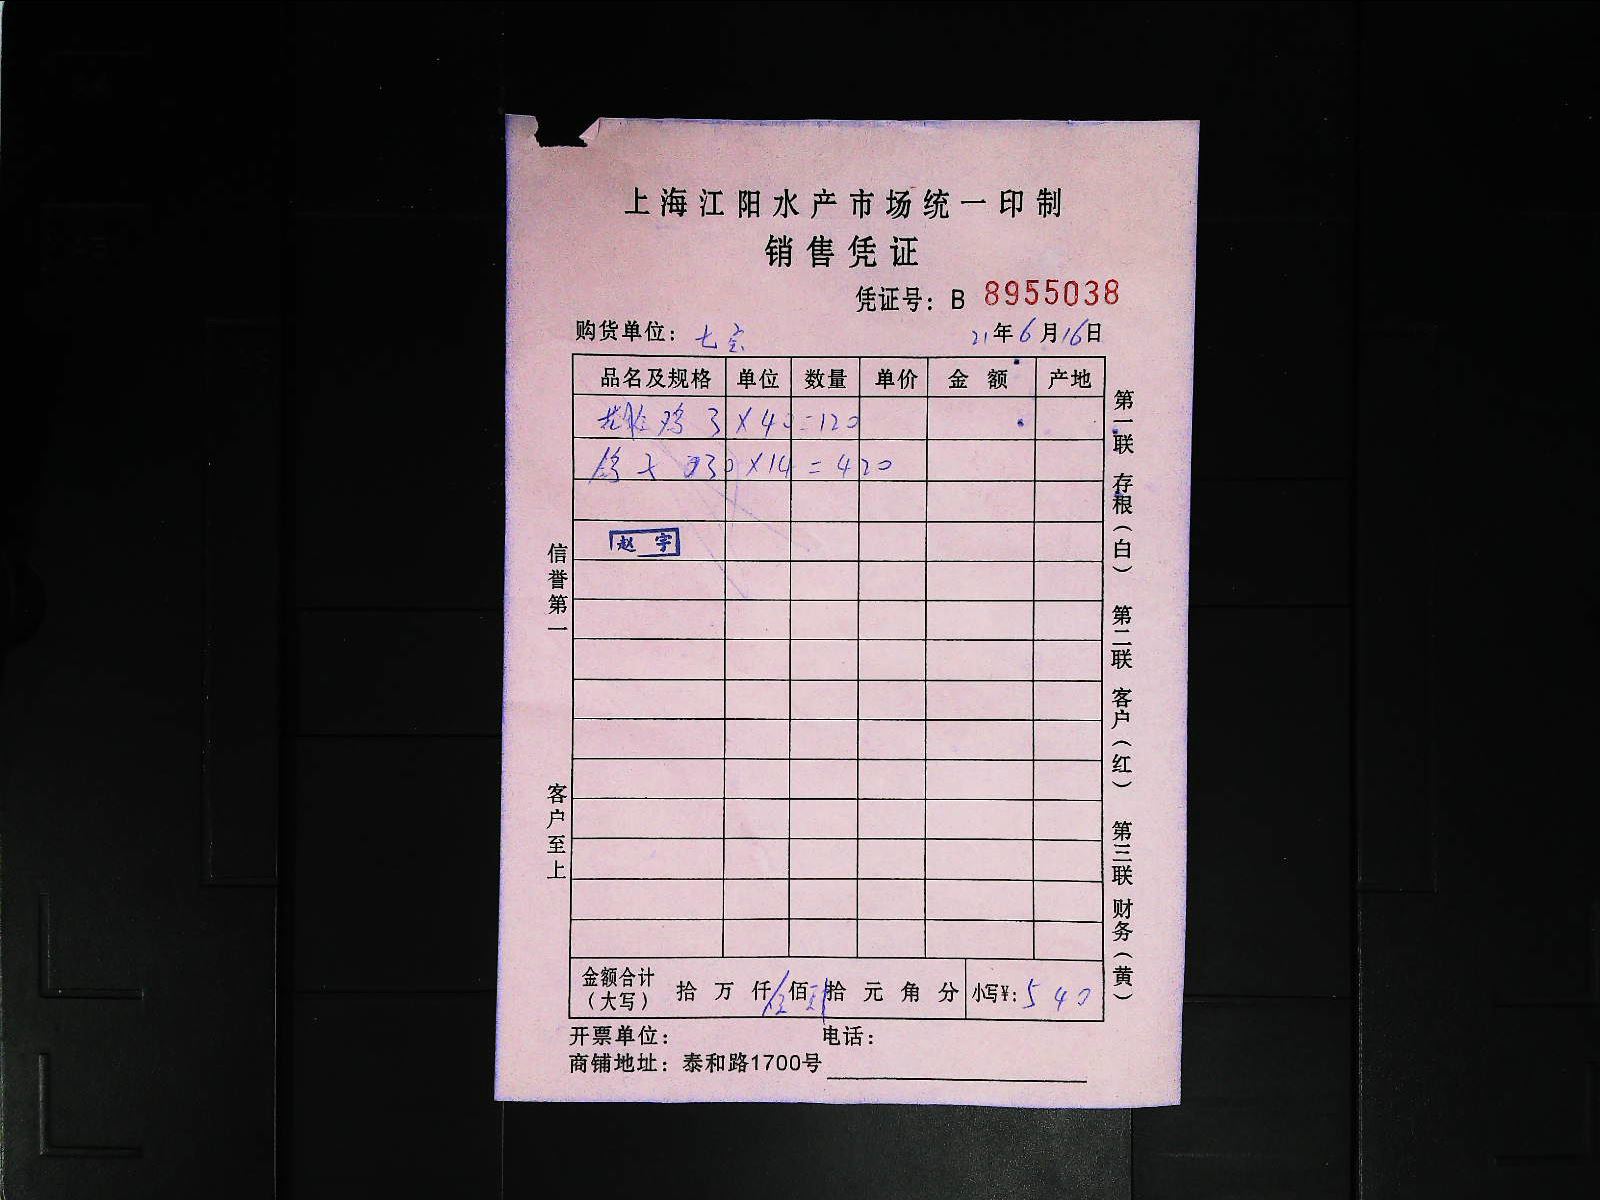 上海江阳水产市场统一印制
销售凭证
凭证号：B 8955038
购货单位：七宝
21年6月16日
品名及规格 单位 数量 单价 金额 产地
鸡 3×40=120
鸽子 30×14=420
赵宇
信誉第一
客户至上
第一联 存根（白） 第二联 客户（红） 第三联 财务（黄）
金额合计（大写） 拾 万 仟 伍佰 肆拾 元 角 分 小写¥：540
开票单位： 电话：
商铺地址：泰和路1700号